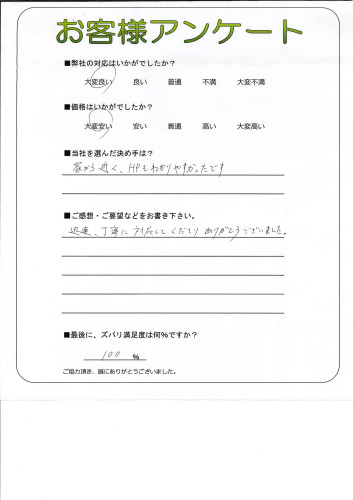 お客様アンケート
■弊社の対応はいかがでしたか?
大変良い 良い 普通 不満 大変不満
■価格はいかがでしたか?
大変安い 安い 普通 高い 大変高い
■当社を選んだ決め手は?
家から近く、HPもわかりやすかったです
■ご感想・ご要望などをお書き下さい。
迅速、丁寧に対応してくださりありがとうございました。
■最後に、ズバリ満足度は何%ですか?
100 %
ご協力頂き、誠にありがとうございました。